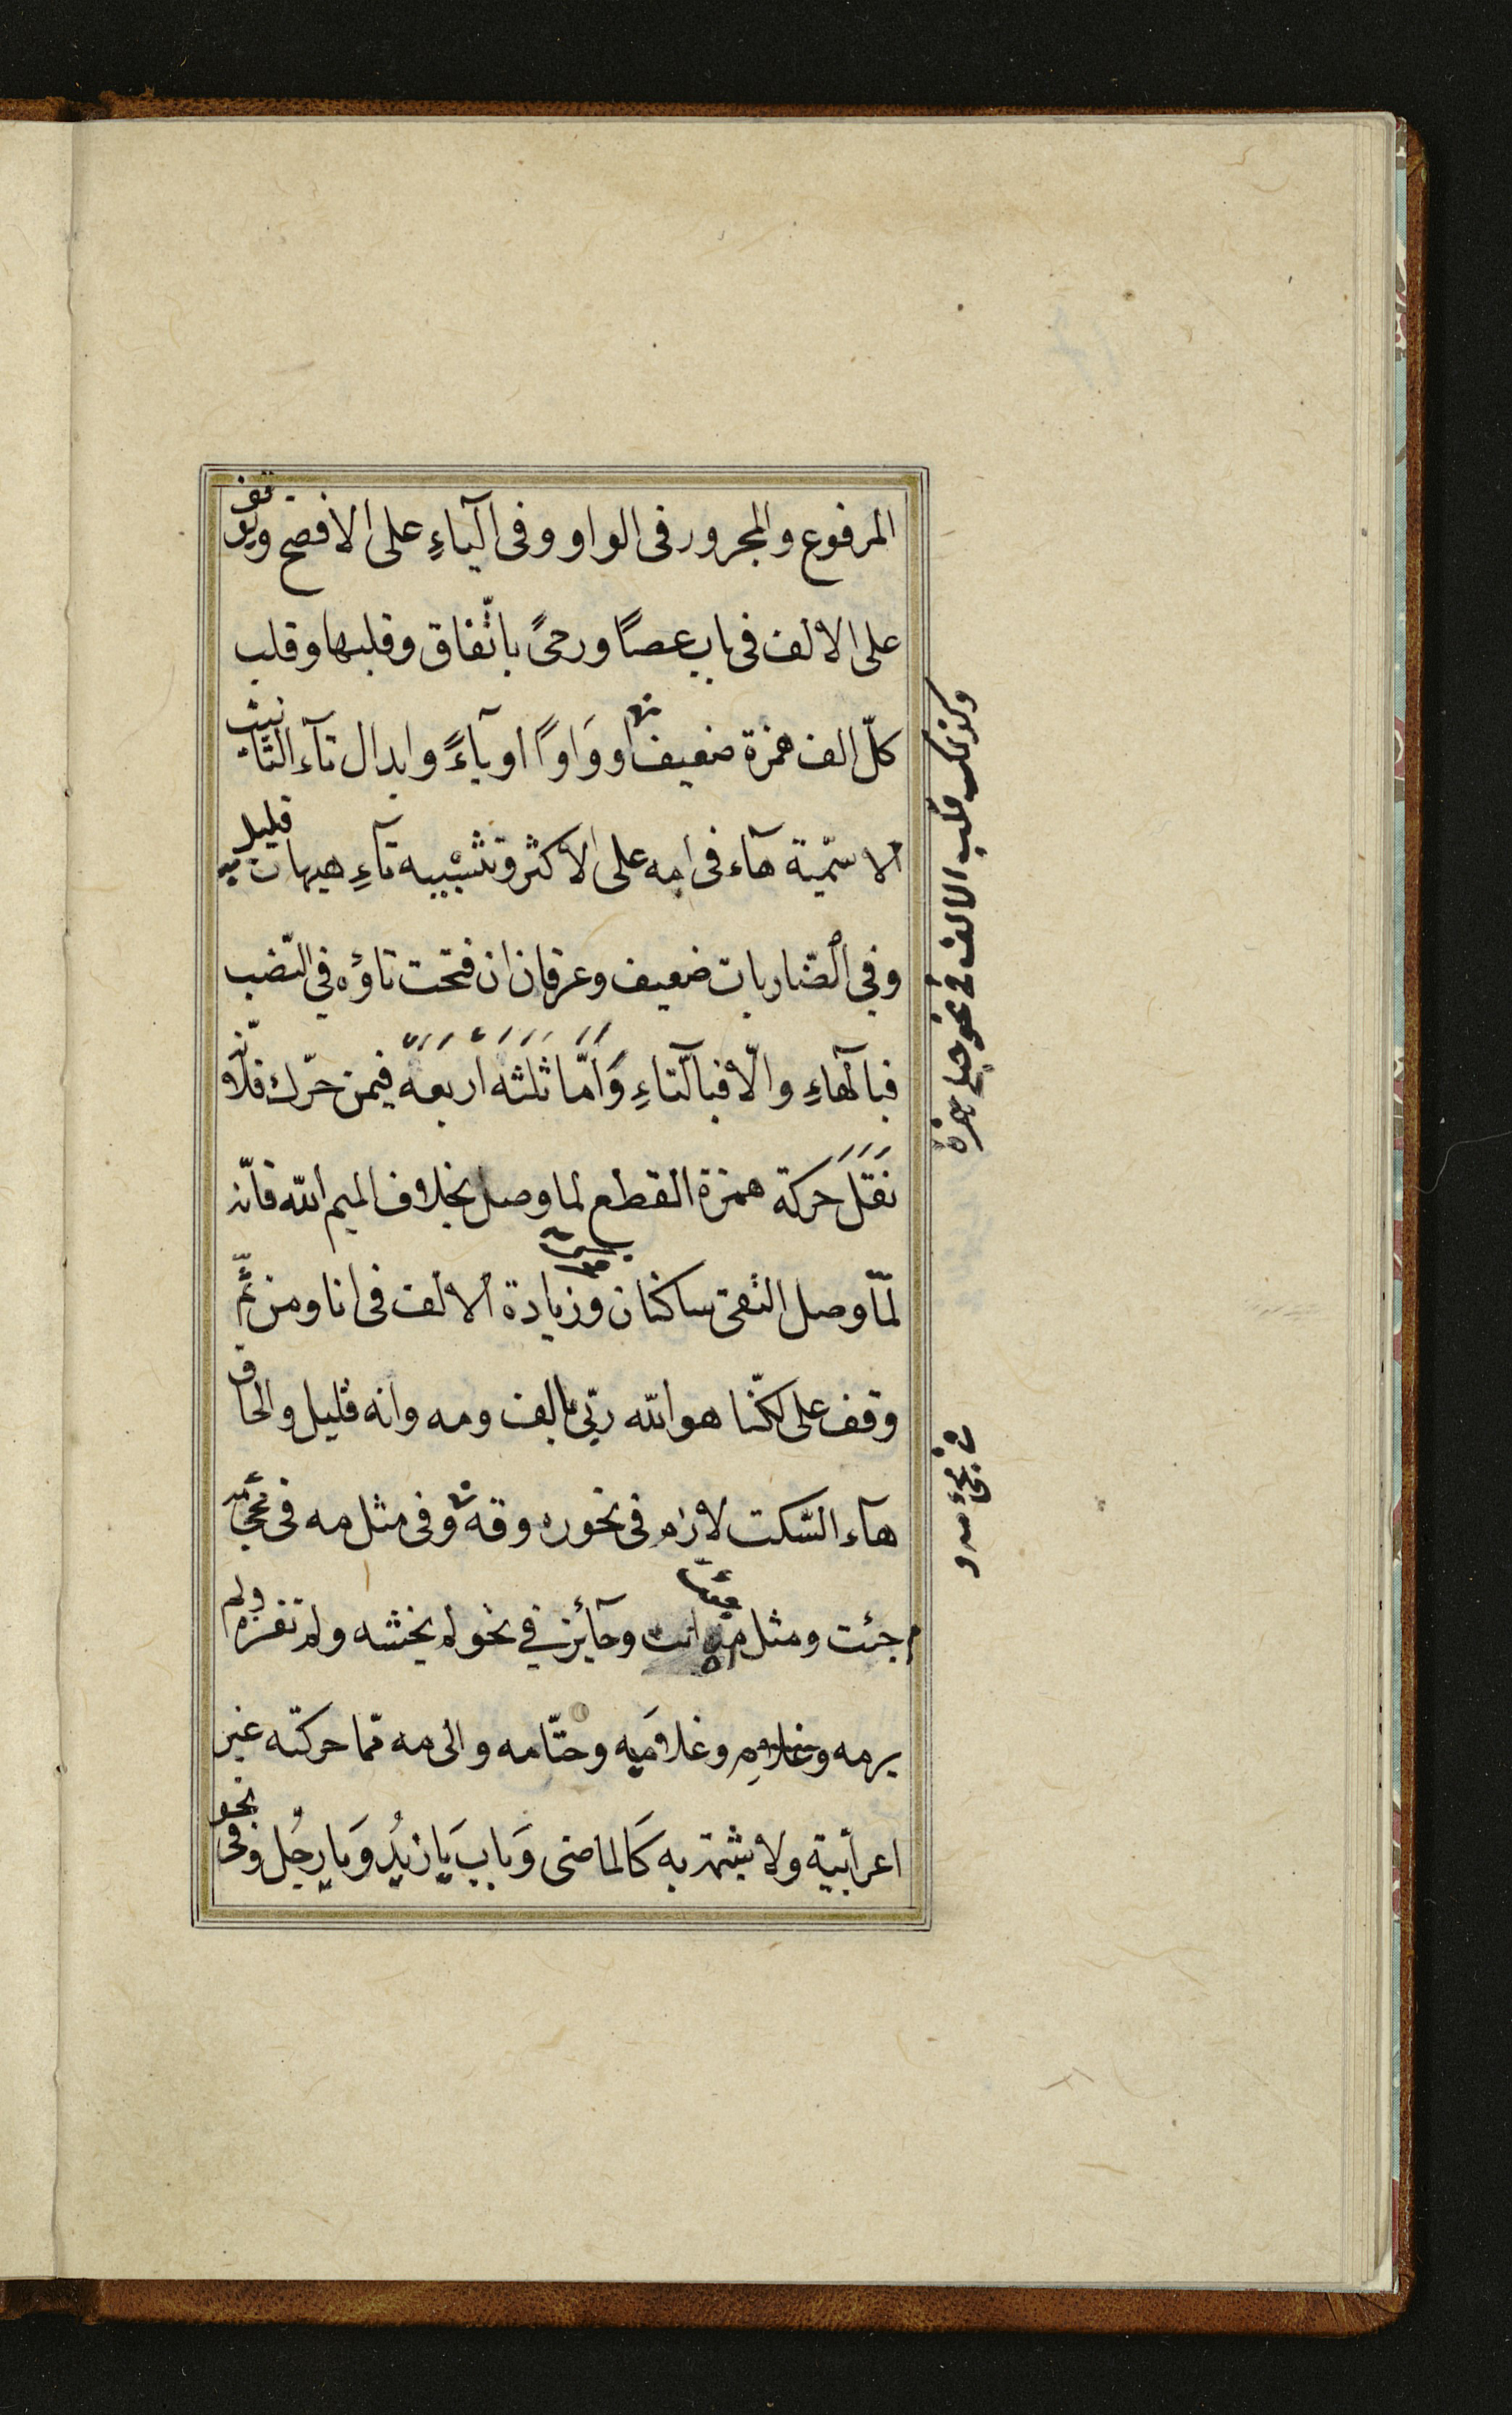 المرفوع والمجرور فى الواو وفى اليآءِ على الافصح ويوقف
على الالف فى باب عصًا ورحىً باتّفاق وقلبها وقلب
كلّ الف همزة ضعيف ووَاوًا او يآءً وابدال تآء التانيث
الاسمّية هآء فى على الاكثر وتشبيه تآءِ هيهات قليل
وفي الضّاربات ضعيف وعرقان ان فتحت تاؤه في النّصب
فبالهاءِ والّا فبالتاءِ وَاَمَّا ثلثهَ اَربعهَ فيمن حرّك فلانّه
نَقَلَ حَركة همزة القطع لما وصل بخلاف الميم الله فانّه
لمّا وصل التقى ساكنان وزيادة الالف فى انا ومن ثَمّ
وقف على لكنّا هو الله ربّي بالف ومه وانه قليل والحاق
هآء السّكت لازم فى نحو ره وقه وفى مثل مه فى مجئ
جئت ومثل مه انت وجآئز في نحو لم يخشه ولم تغزه ولم
يرمه وغلامه وغلامَيه وحتّامه والى مه ممّا حركته غير
اعرابية ولا مشبّهة به كَالماضى وَبابِ يَا زيدُ وَيا رجُل وفى نحو
وكذلك قلب الالف فى نحو حبلى همزة